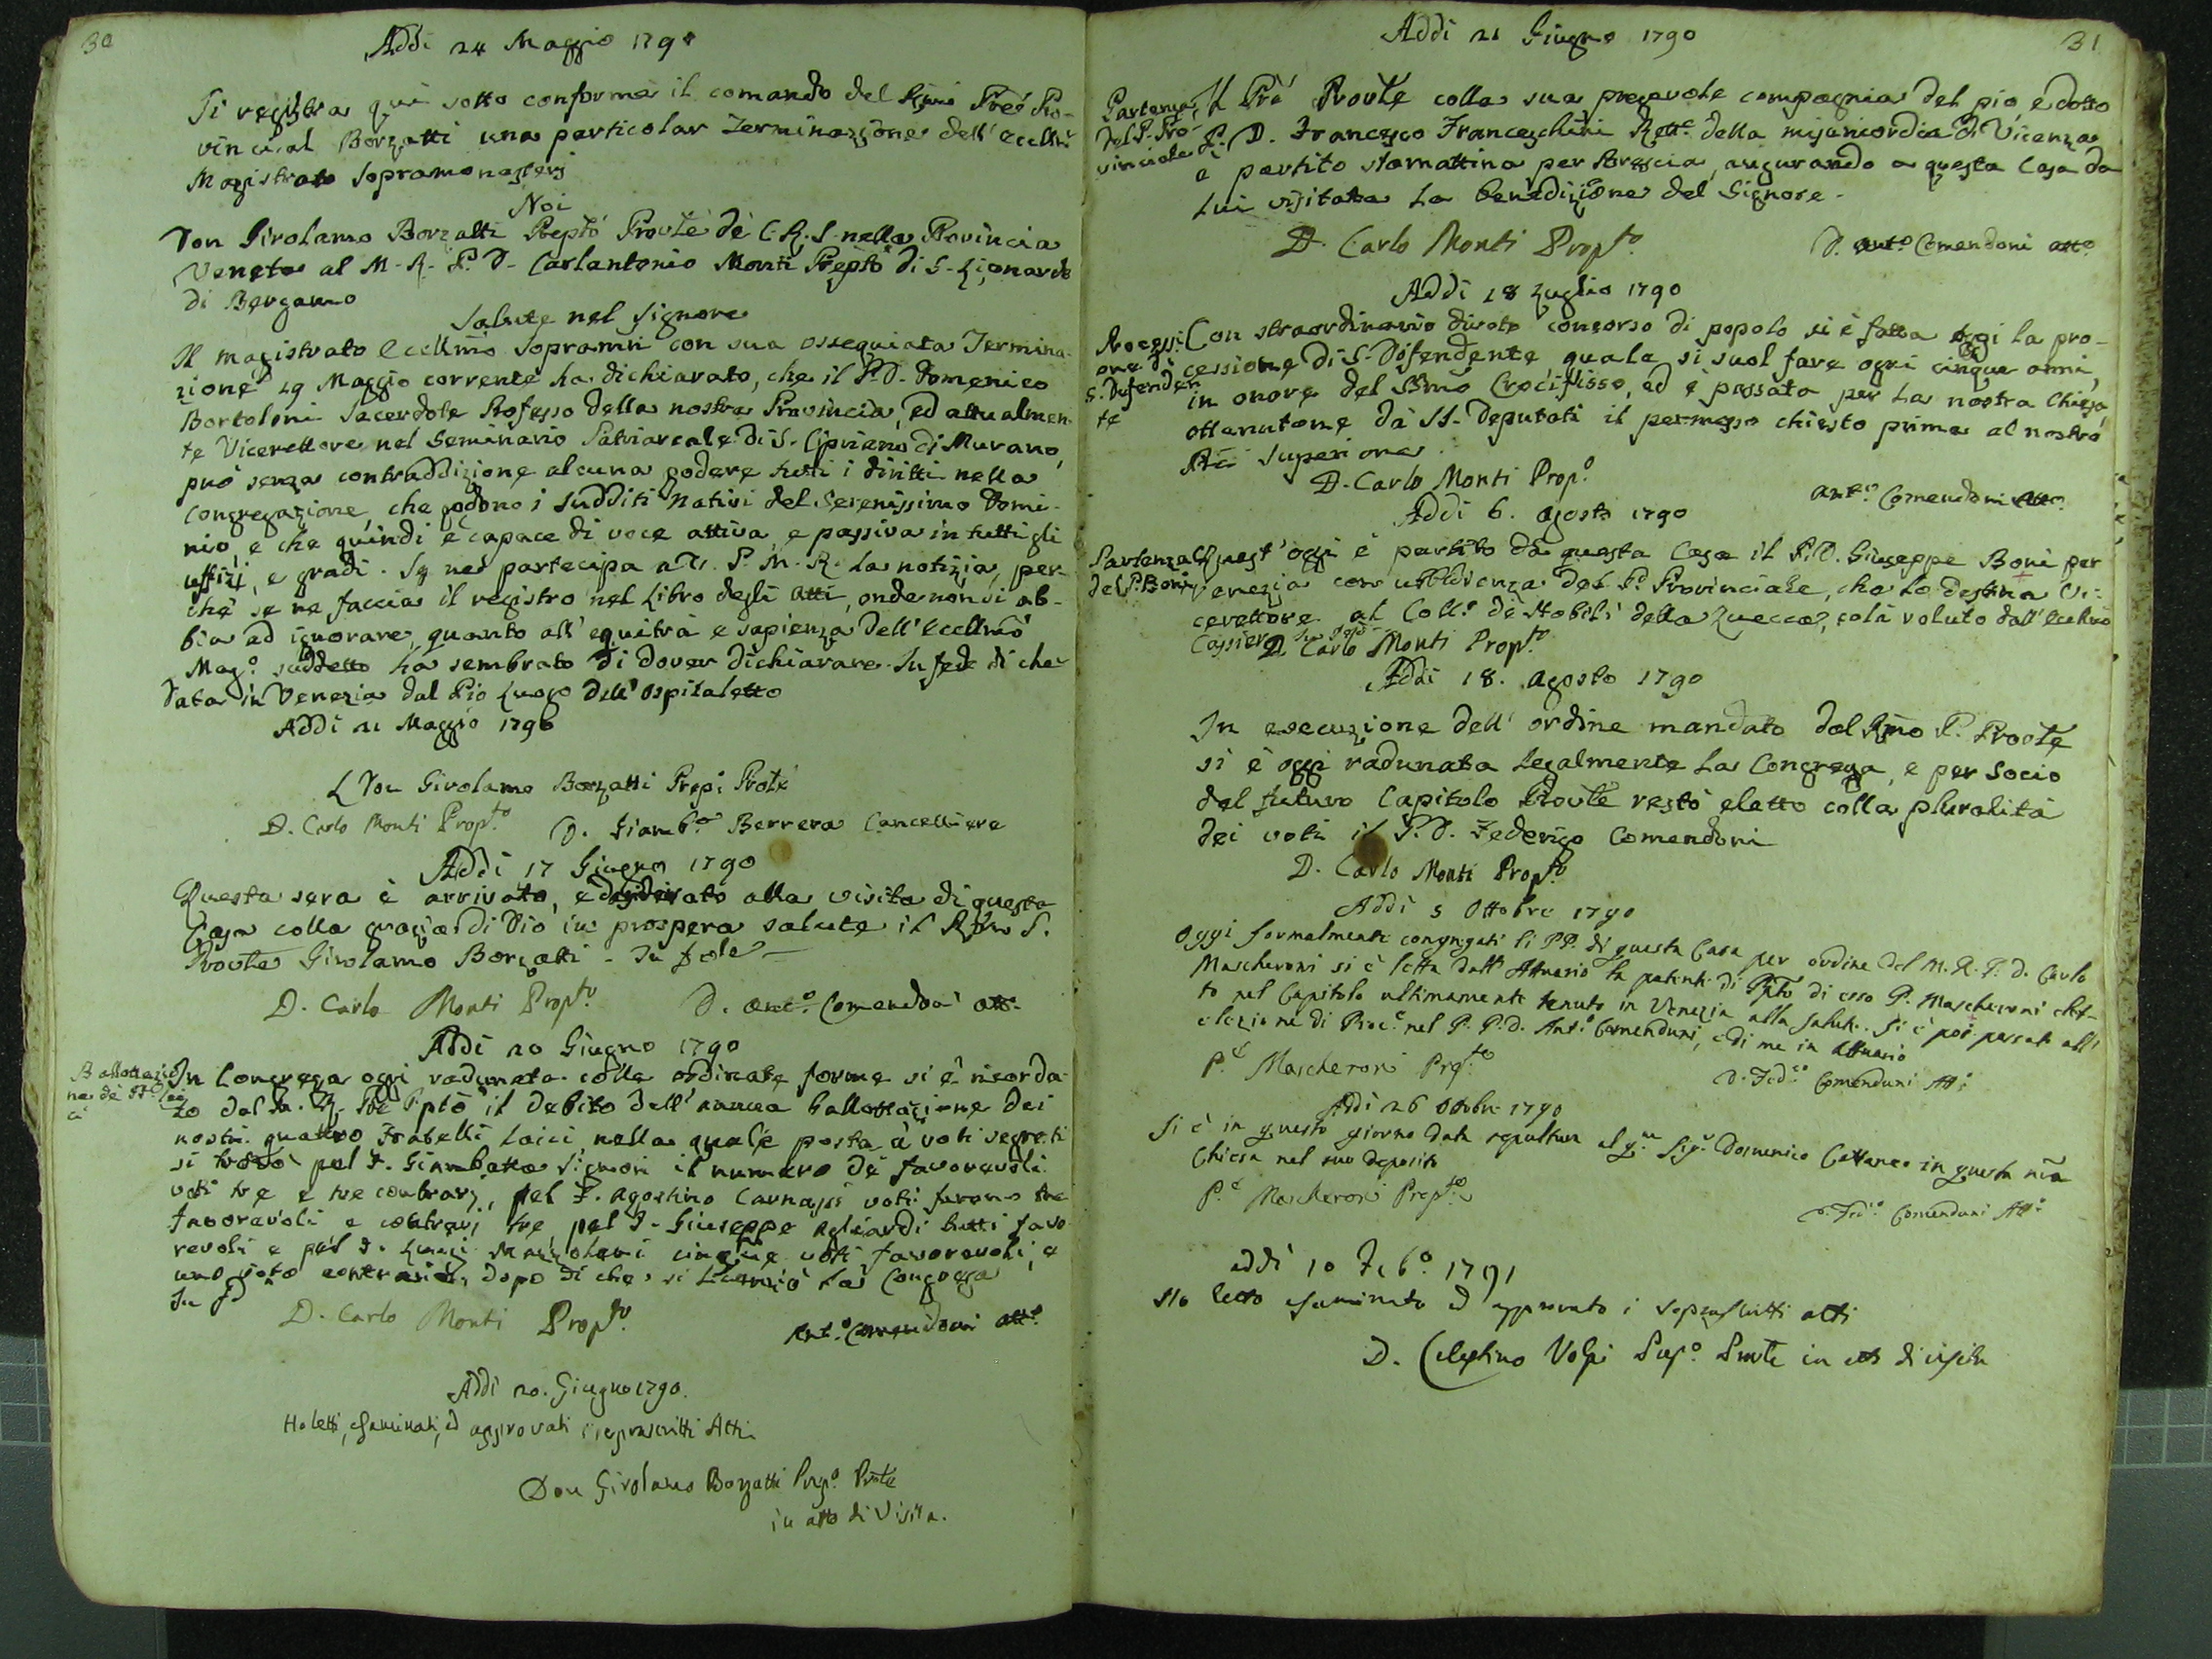 30
Addi 24 Maggio 1790
Si registra qui sotto conforme il comando del Rmo Pre Pro-
vincial Borzatti una particolar Terminazione dell' Ecellmo
Magistrato Sopramonasterj
Noi
Don Girolamo Borzatti Prepto Provle de C. R. S. nella Provincia
Veneta al M. R. P. D. Carlantonio Monti Prepto di S. Lionardo
di Bergamo
Salute nel Signore
Il magistrato Ecellmo Sopramri con sua ossequiata Termina-
zione 19 Maggio corrente ha dichiarato, che il P. D. Domenico
Bortoloni Sacerdote Professo della nostra Provincia, ed attualmen-
te Vicerettore nel Seminario Patriarcale di S. Cipriano di Murano,
può senza contraddizione alcuna godere tutti i diritti nella
Congregazione, che godono i Sudditi Nativi del Serenissimo Domi-
nio, e che quindi è capace di voce attiva, e passiva in tutti gli
uffizj, e gradi. Se ne partecipa a V. P. M. R. la notizia, per-
chè se ne faccia il registro nel Libro degli Atti, onde non si ab-
bia ad ignorare, quanto all' equità e sapienza dell' Ecellmo
Mag.o suddetto ha sembrato di dover dichiarare. In fede di che
Data in Venezia dal Pio Luogo dell' Ospitaletto
Addi 21 Maggio 1790
L Don Girolamo Borzatti Prepo Prole
D. Carlo Monti Propto. D. Giamb.a Berrera Cancelliere
Addi 17 Giugno 1790
Questa sera è arrivato, e alla visita di questa
Casa colla grazia di Dio in prospera salute il Rmo P.
Provle Girolamo Borzatti - In fede
D. Carlo Monti Propto. D. Ant.o Comendoni Att.
Addi 20 Giugno 1790
Ballottazio-
ne de FF. Lai-
ci
In Congrega oggi radunata colle ordinate forme si è ricorda-
to dal M. R. Pre Ppto il debito dell' annua ballottazione dei
nostri quattro Fratelli Laici, nella quale posta à voti segreti
si trovò pel F. Giambatta Signori il numero de favorevoli
voti tre e tre contrarj, pel F. Agostino Carnassi voti furono tre
favorevoli e contrarj tre pel F. Giuseppe Agliardi tutti favo-
revoli e pel F. Luigi Mazzoleni cinque voti favorevoli, e
uno voto contrario, dopo di che si licenziò la Congrega
In fe
D. Carlo Monti Propto.
Ant.o Comendoni Att.o
Addi 20. Giugno 1790.
Ho letti, esaminati, ed approvati i soprascritti Atti.
Don Girolamo Borzatti Prep.o Prole
in atto di Visita.
31
Addi 21 Giugno 1790
Partenza
del P. Pro-
vinciale
Il Pre Provle colla sua pregevole compagnia del pio, e dotto
P. D. Francesco Franceschini Rett.e della misericordia di Vicenza
è partito stamattina per Brescia, augurando a questa Casa da
Lui visitata la benedizione del Signore.
D. Carlo Monti Propto.
D. Ant.o Comendoni Att.o
Addi 18 Luglio 1790
Processi-
one di
S. Defenden-
te
Con straordinario divoto concorso di popolo si è fatta oggi la pro-
cessione di S. Defendente quale si suol fare ogni cinque anni,
in onore del SSmo Crocifisso, ed è passata per la nostra Chiesa,
ottenutone da SS. Deputati il permesso chiesto prima al nostro
Pre Superiore.
D. Carlo Monti Prop.o
Ant.o Comendoni Att.o
Addi 6. Agosto 1790
Partenza
del P. Boni
Quest' oggi è partito da questa Casa il P. D. Giuseppe Boni per
Venezia con ubbidienza del P. Provinciale, che lo destina Vi-
cerettore al Coll.o de Nobili della Zuecca, colà voluto dall' Ecellmo
Cassiere In fede
D. Carlo Monti Propto.
Addi 18. Agosto 1790
In esecuzione dell' ordine mandato dal Rmo P. Provle
si è oggi radunata legalmente la Congrega, e per Socio
del futuro Capitolo Provle restò eletto colla pluralità
dei voti il P. D. Federigo Comendoni
D. Carlo Monti Propto.
Addi 5 Ottobre 1790
Oggi formalmente congregati li PP. di questa Casa per ordine del M. R. P. D. Carlo
Mascheroni si è letta dall' Attuario la patente di Ppto di esso P. Mascheroni elet-
to nel Capitolo ultimamente tenuto in Venezia alla Salute. Si è poi passati all'
elezione di Proc.e nel P. P. D. Ant.o Comenduni, e di me in Attuario
P.e Mascheroni Prepto.
D. Fed.co Comenduni Att.o
Addi 26 Ottobre 1790
Si è in questo giorno data sepultura al q.m Sig.r Domenico Cattaneo in questa nra
Chiesa nel suo deposito
P.e Mascheroni Prepto.
D. Fed.o Comenduni Att.o
addì 10 Feb.o 1791
Ho letto esaminato ed approvato i soprascritti atti
D. Celestino Volpi Prep.o Provle in atto di visita